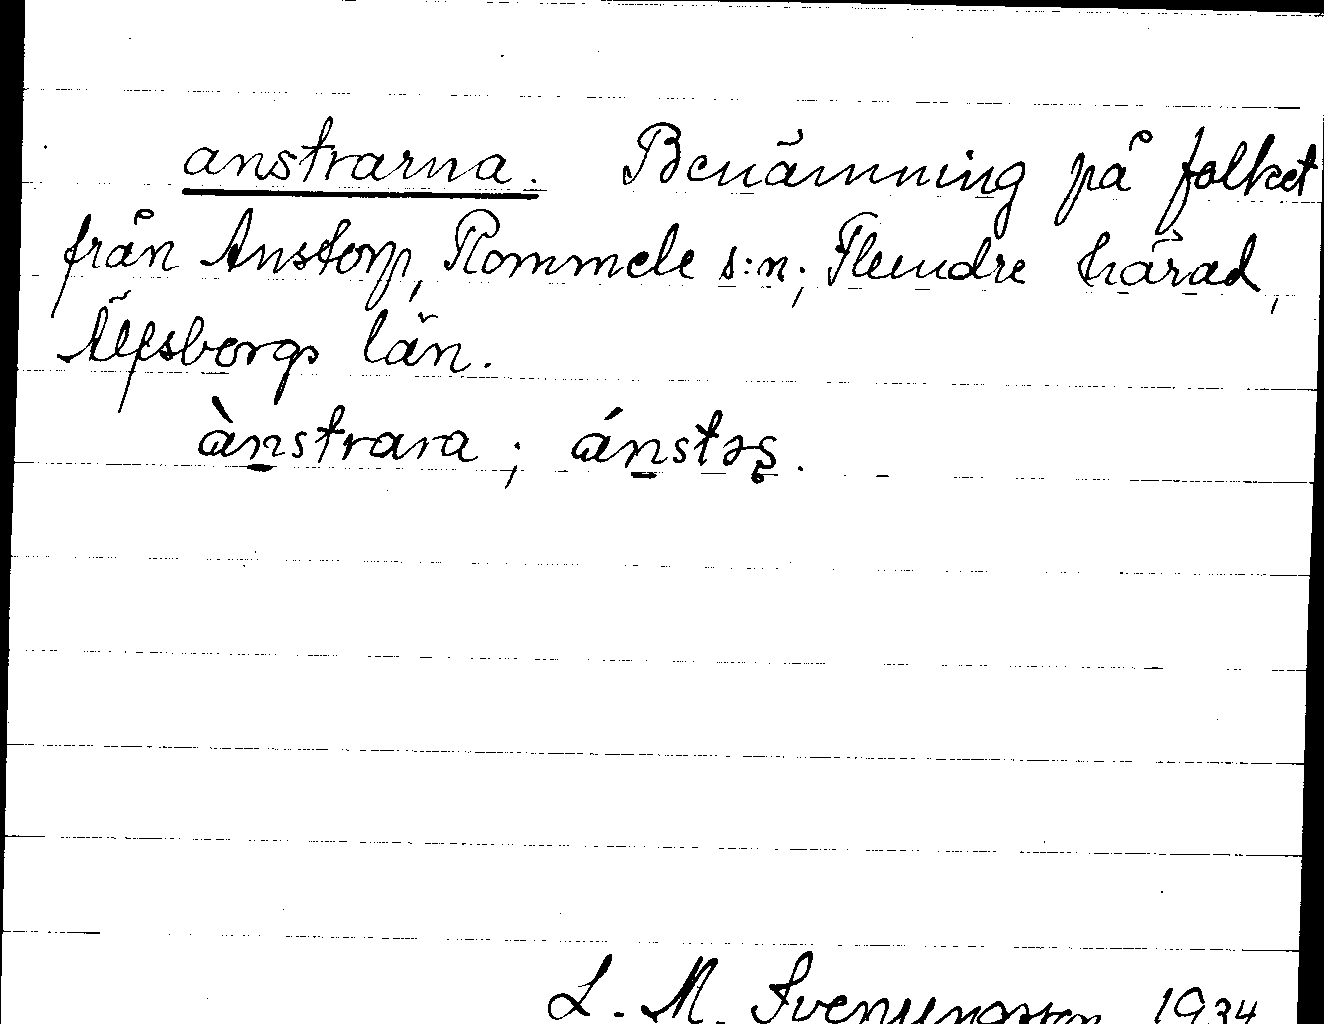 anstrarna. Benämning på folket
från Anstorp, Rommele s:n; Flundre härad,
Älfsborgs län.
ànstrara; ánstəş.
L. M. Svenungsson 1934